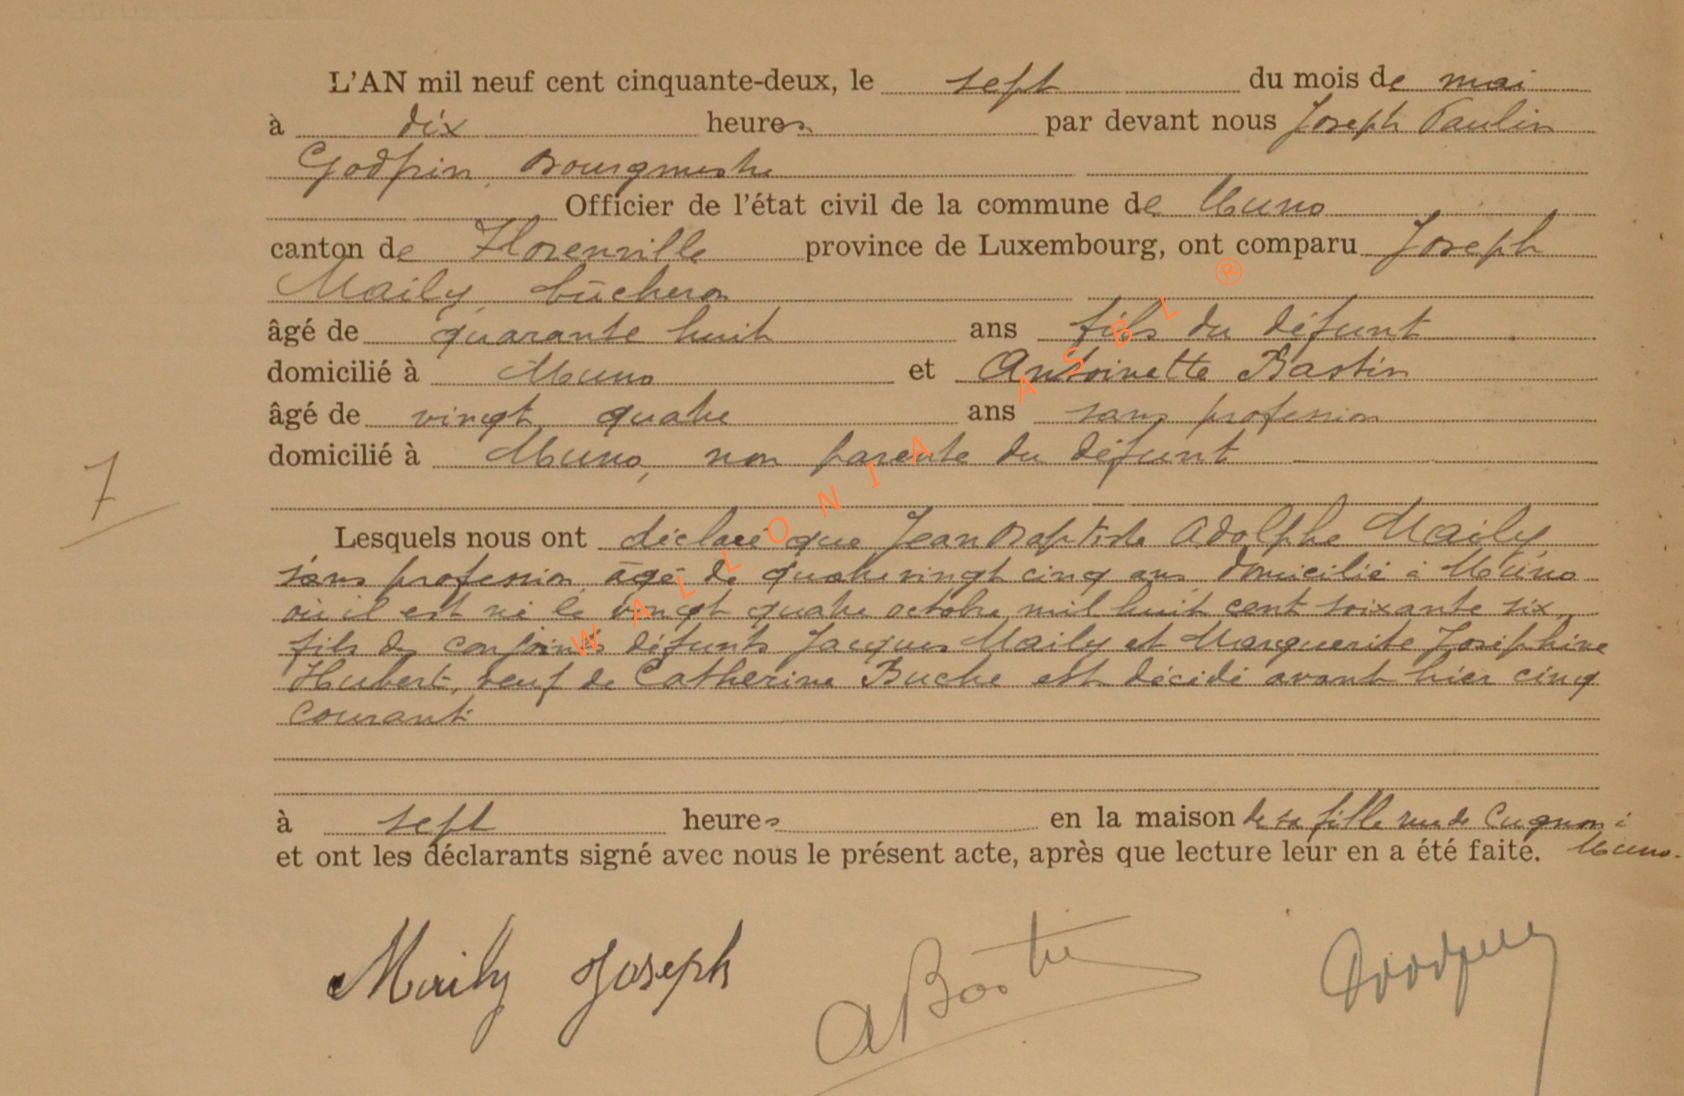 L'AN mil neuf cent cinquante-deux, le sept du mois de mai
à dix heures par devant nous Joseph Paulin
Godfrin, Bourgmestre
Officier de l'état civil de la commune de Muno
canton de Florenville province de Luxembourg, ont comparu Joseph
Maily, bûcheron
âgé de quarante huit ans fils du défunt
domicilié à Muno et Antoinette Bastin
âgé de vingt quatre ans sans profession
domicilié à Muno, non parente du défunt
7
Lesquels nous ont déclaré que Jean Baptiste Adolphe Maily,
sans profession âgé de quatre vingt cinq ans domicilié à Muno
où il est né le vingt quatre octobre mil huit cent soixante six,
fils des conjoints défunts Jacques Maily et Marguerite Joséphine
Hubert, veuf de Catherine Buche est décédé avant hier cinq
courant
à sept heures en la maison de sa fille rue de Cugnon à
et ont les déclarants signé avec nous le présent acte, après que lecture leur en a été faite. Muno.
Maily Joseph ABastin Godfrin
WALLONIA ASBL ®